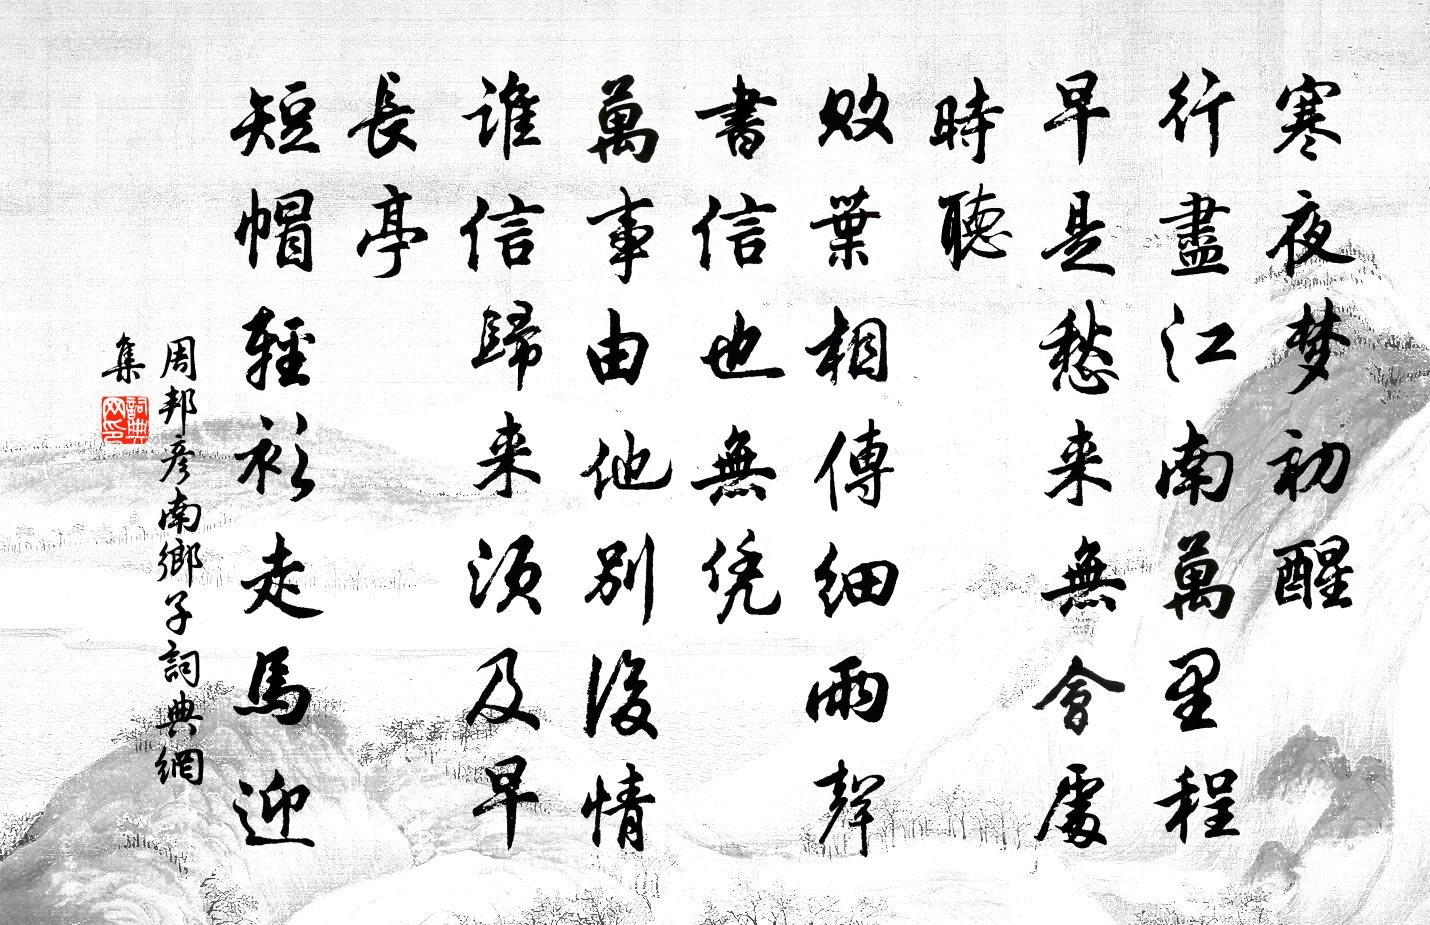 寒夜梦初醒
行盡江南萬里程
早是愁来無會處
時聽
敗葉相傳細雨聲
書信也無凭
萬事由他別後情
誰信歸来須及早
長亭
短帽輕衫走馬迎
周邦彦南鄉子詞典網
集
詞典网印